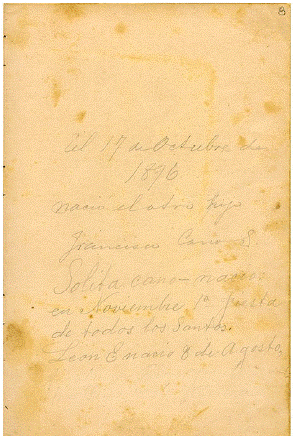 8
El 17 de Octubre de
1896
nacio el otro hijo
Francisco Cano S.
Solita Cano nacio
en Noviembre 1º fiesta
de todos los Santos.
Leon Enano 8 de Agosto.